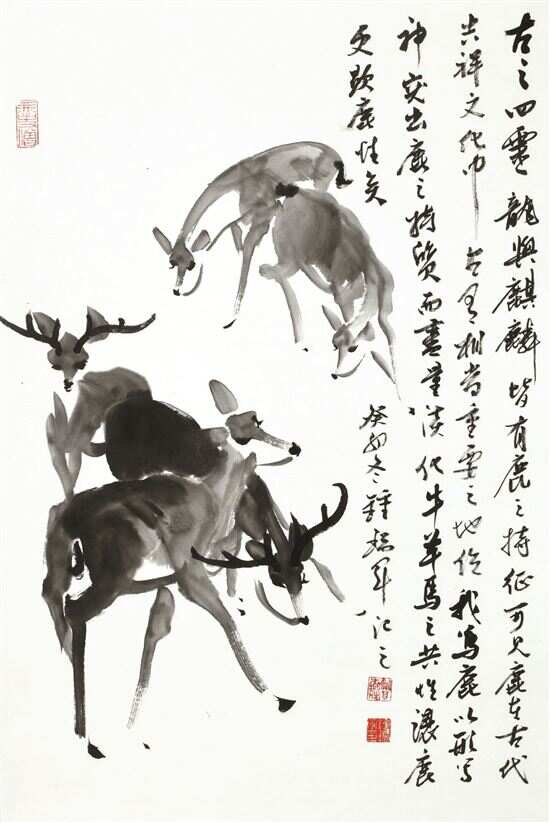 古之四灵龍與麒麟皆有鹿之特征可见鹿在古代
吉祥文化中占有相当重要之地位我写鹿以形写
神突出鹿之特质而尽量淡化牛羊马之共性让鹿
更欵鹿性矣
癸巳冬鍾瑞军记之